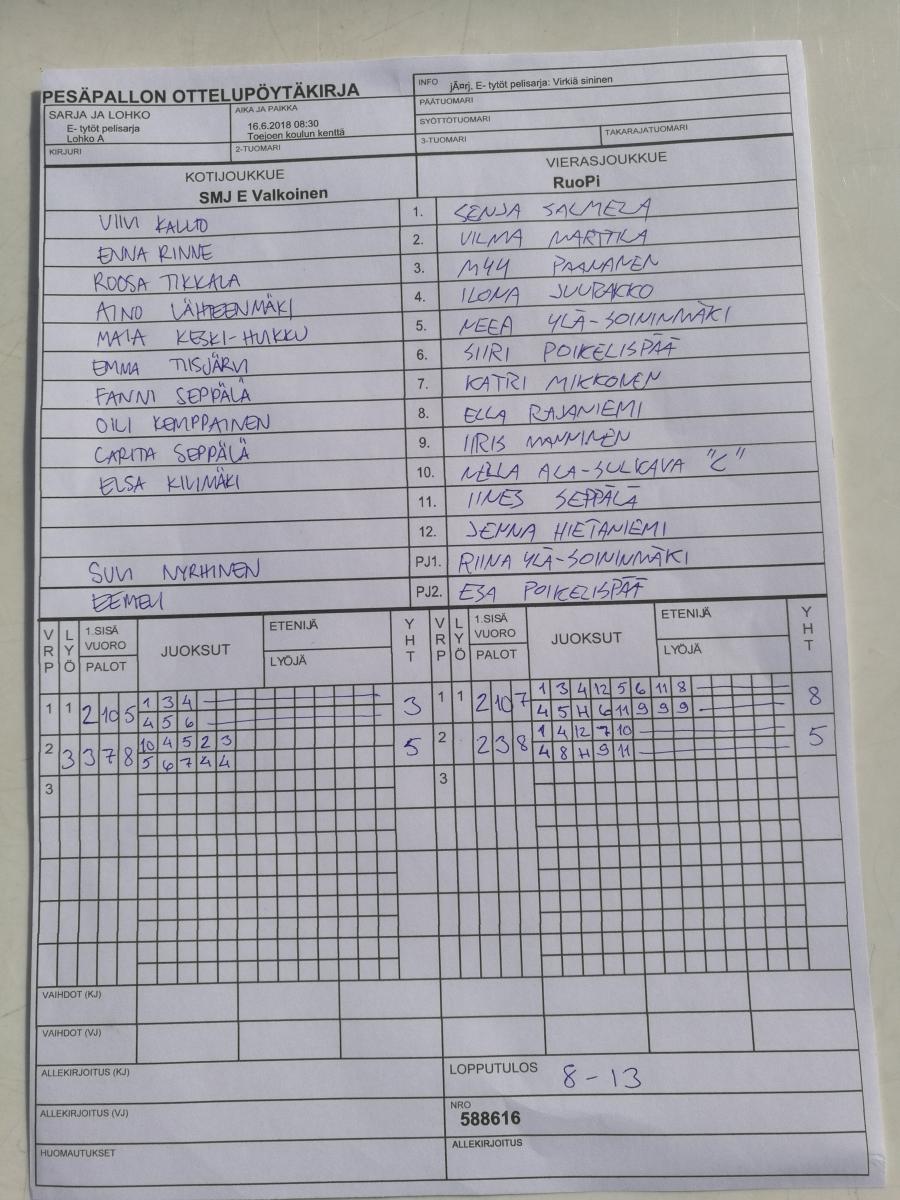 PESÄPALLON OTTELUPÖYTÄKIRJA
INFO jÃ¤rj. E- tytöt pelisarja: Virkiä sininen
PÄÄTUOMARI
SARJA JA LOHKO
E- tytöt pelisarja
Lohko A
AIKA JA PAIKKA
16.6.2018 08:30
Toejoen koulun kenttä
SYÖTTÖTUOMARI
KIRJURI
2-TUOMARI
3-TUOMARI
TAKARAJATUOMARI
KOTIJOUKKUE
SMJ E Valkoinen
VIERASJOUKKUE
RuoPi
VIIVI KALLIO 1. SENJA SALMELA
ENNA RINNE 2. VILMA MARTTILA
ROOSA TIKKALA 3. MYY PAANANEN
AINO LÄHTEENMÄKI 4. ILONA JUURAKKO
MAIA KESKI-HUIKKU 5. NEEA YLÄ-SOININMÄKI
EMMA TIISJÄRVI 6. SIIRI POIKELISPÄÄ
FANNI SEPPÄLÄ 7. KATRI MIKKONEN
OILI KEMPPAINEN 8. ELLA RAJANIEMI
CARITA SEPPÄLÄ 9. IIRIS MANNINEN
ELSA KILIMÄKI 10. NELLA ALA-SULKAVA "C"
11. IINES SEPPÄLÄ
12. JENNA HIETANIEMI
SUVI NYRHINEN PJ1. RIINA YLÄ-SOININMÄKI
EEMELI PJ2. ESA POIKELISPÄÄ
VRP LYÖ 1.SISÄ VUORO PALOT JUOKSUT ETENIJÄ LYÖJÄ YHT VRP LYÖ 1.SISÄ VUORO PALOT JUOKSUT ETENIJÄ LYÖJÄ YHT
1 1 2 10 5 1 3 4 3 1 1 2 10 7 1 3 4 12 5 6 11 8 8
4 5 6 4 5 H 6 11 9 9 9
2 3 3 7 8 10 4 5 2 3 5 2 2 3 8 1 4 12 7 10 5
5 6 7 4 4 4 8 H 9 11
3 3
VAIHDOT (KJ)
VAIHDOT (VJ)
ALLEKIRJOITUS (KJ)
LOPPUTULOS 8 - 13
ALLEKIRJOITUS (VJ)
NRO
588616
HUOMAUTUKSET
ALLEKIRJOITUS